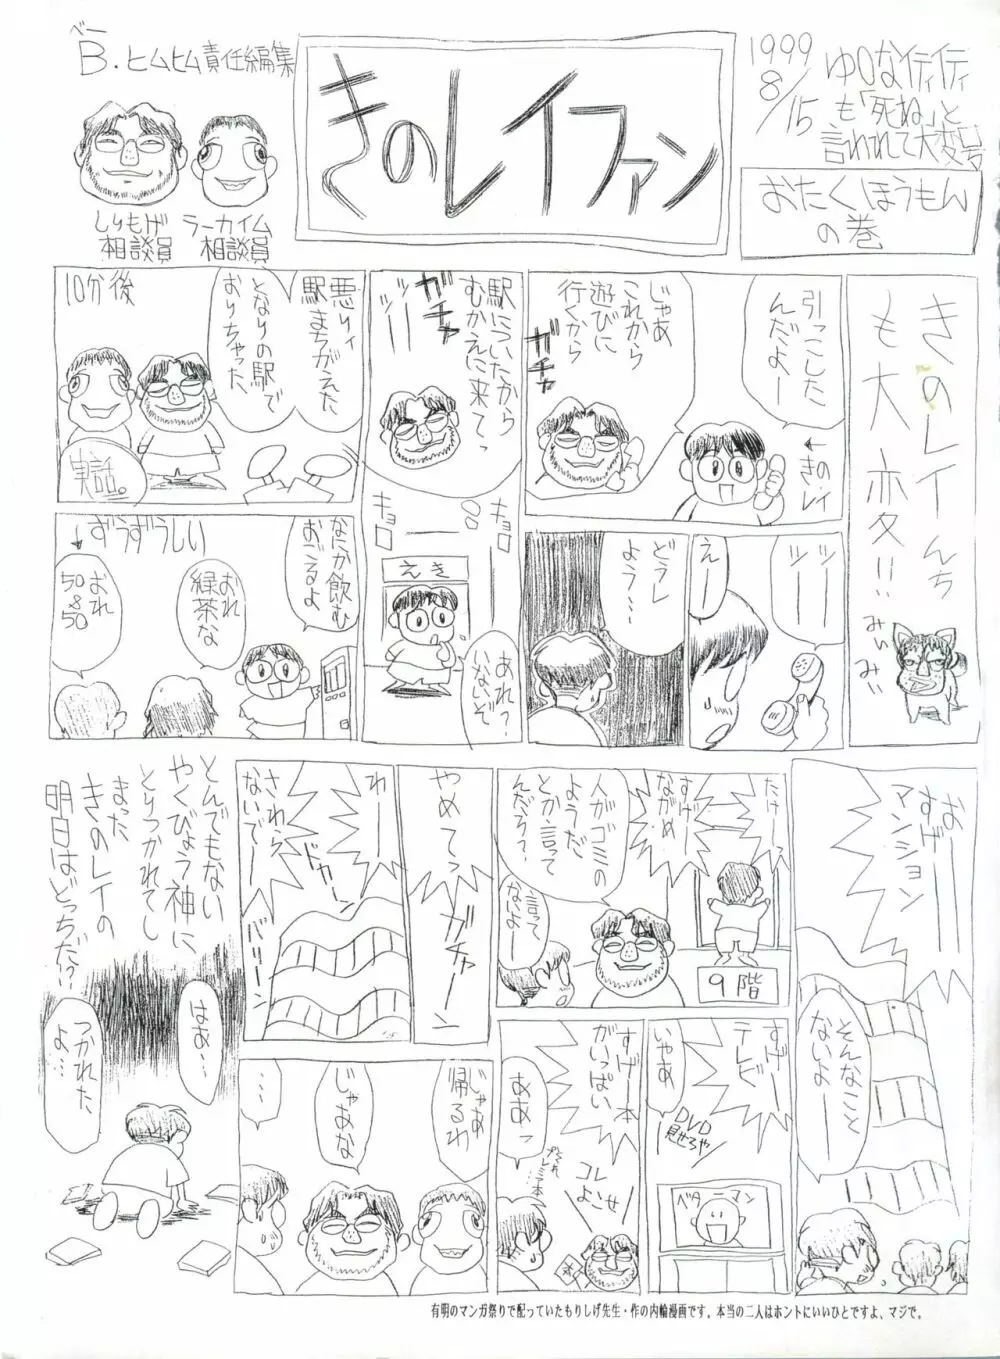 ベー
B.ヒムヒム責任編集
しりもげ
相談員
ラーカイム
相談員
きのレイファン
1999
8/15
ゆりな行行
も「死ね」と
言われて大変号
おたくほうもん
の巻
きのレイんち
も大変!!
みぃみぃ
引っこした
んだよー
←きのレイ
じゃあ
これから
遊びに
行くから
ガチャ
ツー
ツー
えー
どうし
よう…
駅についたから
むかえに来てっ
ガチャ
ツー
ツー
キョロ
キョロ
えき
あれ?
いないぞ
悪ィ
駅まちがえた
となりの駅で
おりちゃった
10分後
実話。
なんか飲む
おごるよ
おれ
緑茶な
おれ
50&50
ずうずうしい
おー
すげー
マンション
そんなこと
ないよー
たけー
すげー
ながめ
人がゴミの
ようだ
とか言って
んだろ?
言って
ないよー
9階
すげー
テレビ
いやあ
DVD
見せろや
ベターマン
すげー本
がいっぱい
ああっ
コレ
よこせ
やめてっ
ガチャーン
わー
さわら
ないでー
ドカーン
バリーン
じゃあ
帰るわ
じゃあな
…
とんでもない
やくびょう神に
とりつかれてし
まった
きのレイの
明日はどっちだ!?
はぁ…
つかれた
よ…
有明のマンガ祭りで配っていたもりしげ先生・作の内輪漫画です。本当の二人はホントにいいひとですよ、マジで。